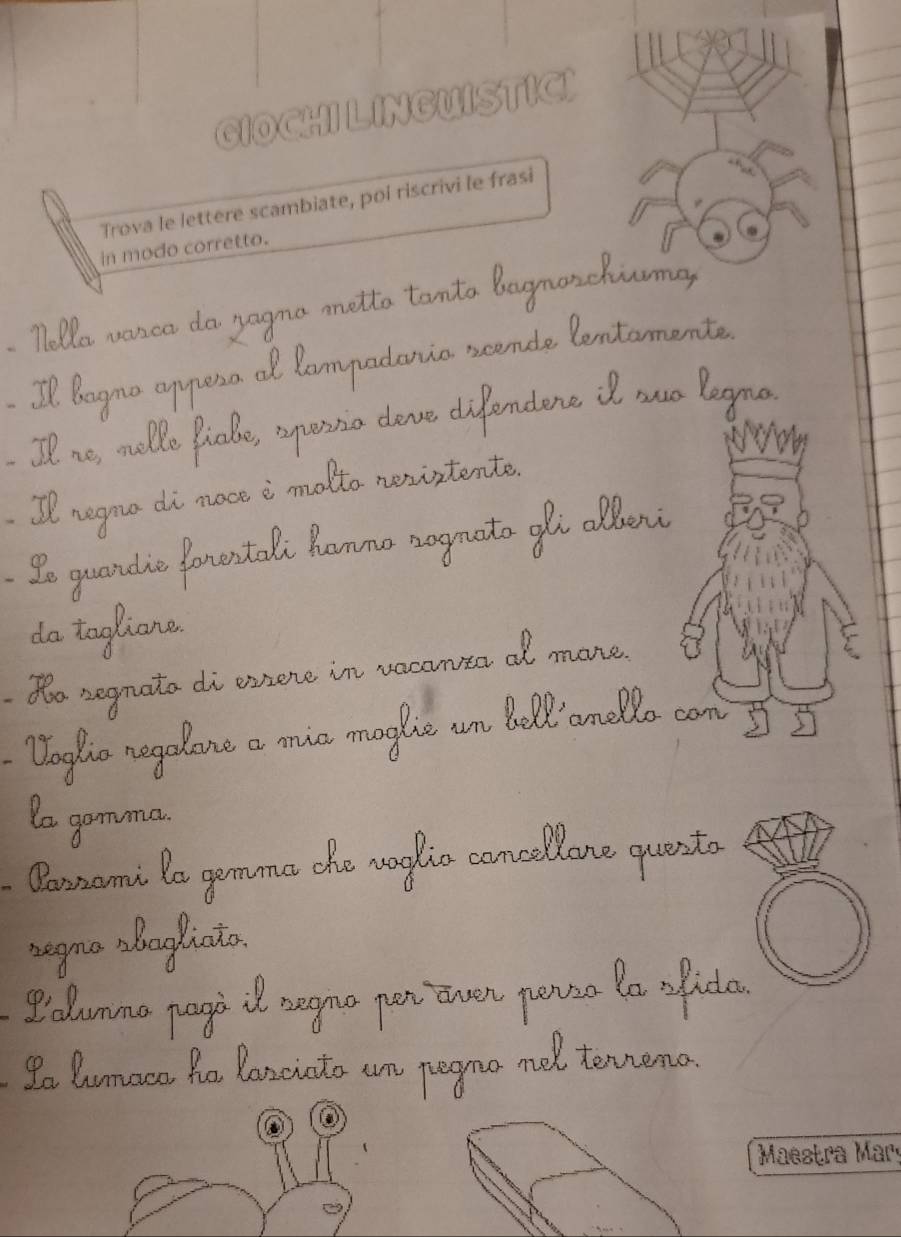 GIOCHI LINGUISTICI
Trova le lettere scambiate, poi riscrivi le frasi
in modo corretto.
- Nella vasca da ragno metto tanto bagnoschiuma,
- Il bagno appeso al lampadario scende lentamente.
- Il re, nelle fiabe, spesso deve difendere il suo legno.
- Il regno di noce è molto resistente.
- Le guardie forestali hanno sognato gli alberi
da tagliare.
- Ho segnato di essere in vacanza al mare.
- Voglio regalare a mia moglie un bell'anello con
la gomma.
- Passami la gemma che voglio cancellare questo
segno sbagliato.
- L'alunno pagò il segno per aver perso la sfida.
- La lumaca ha lasciato un pegno nel terreno.
Maestra Mary